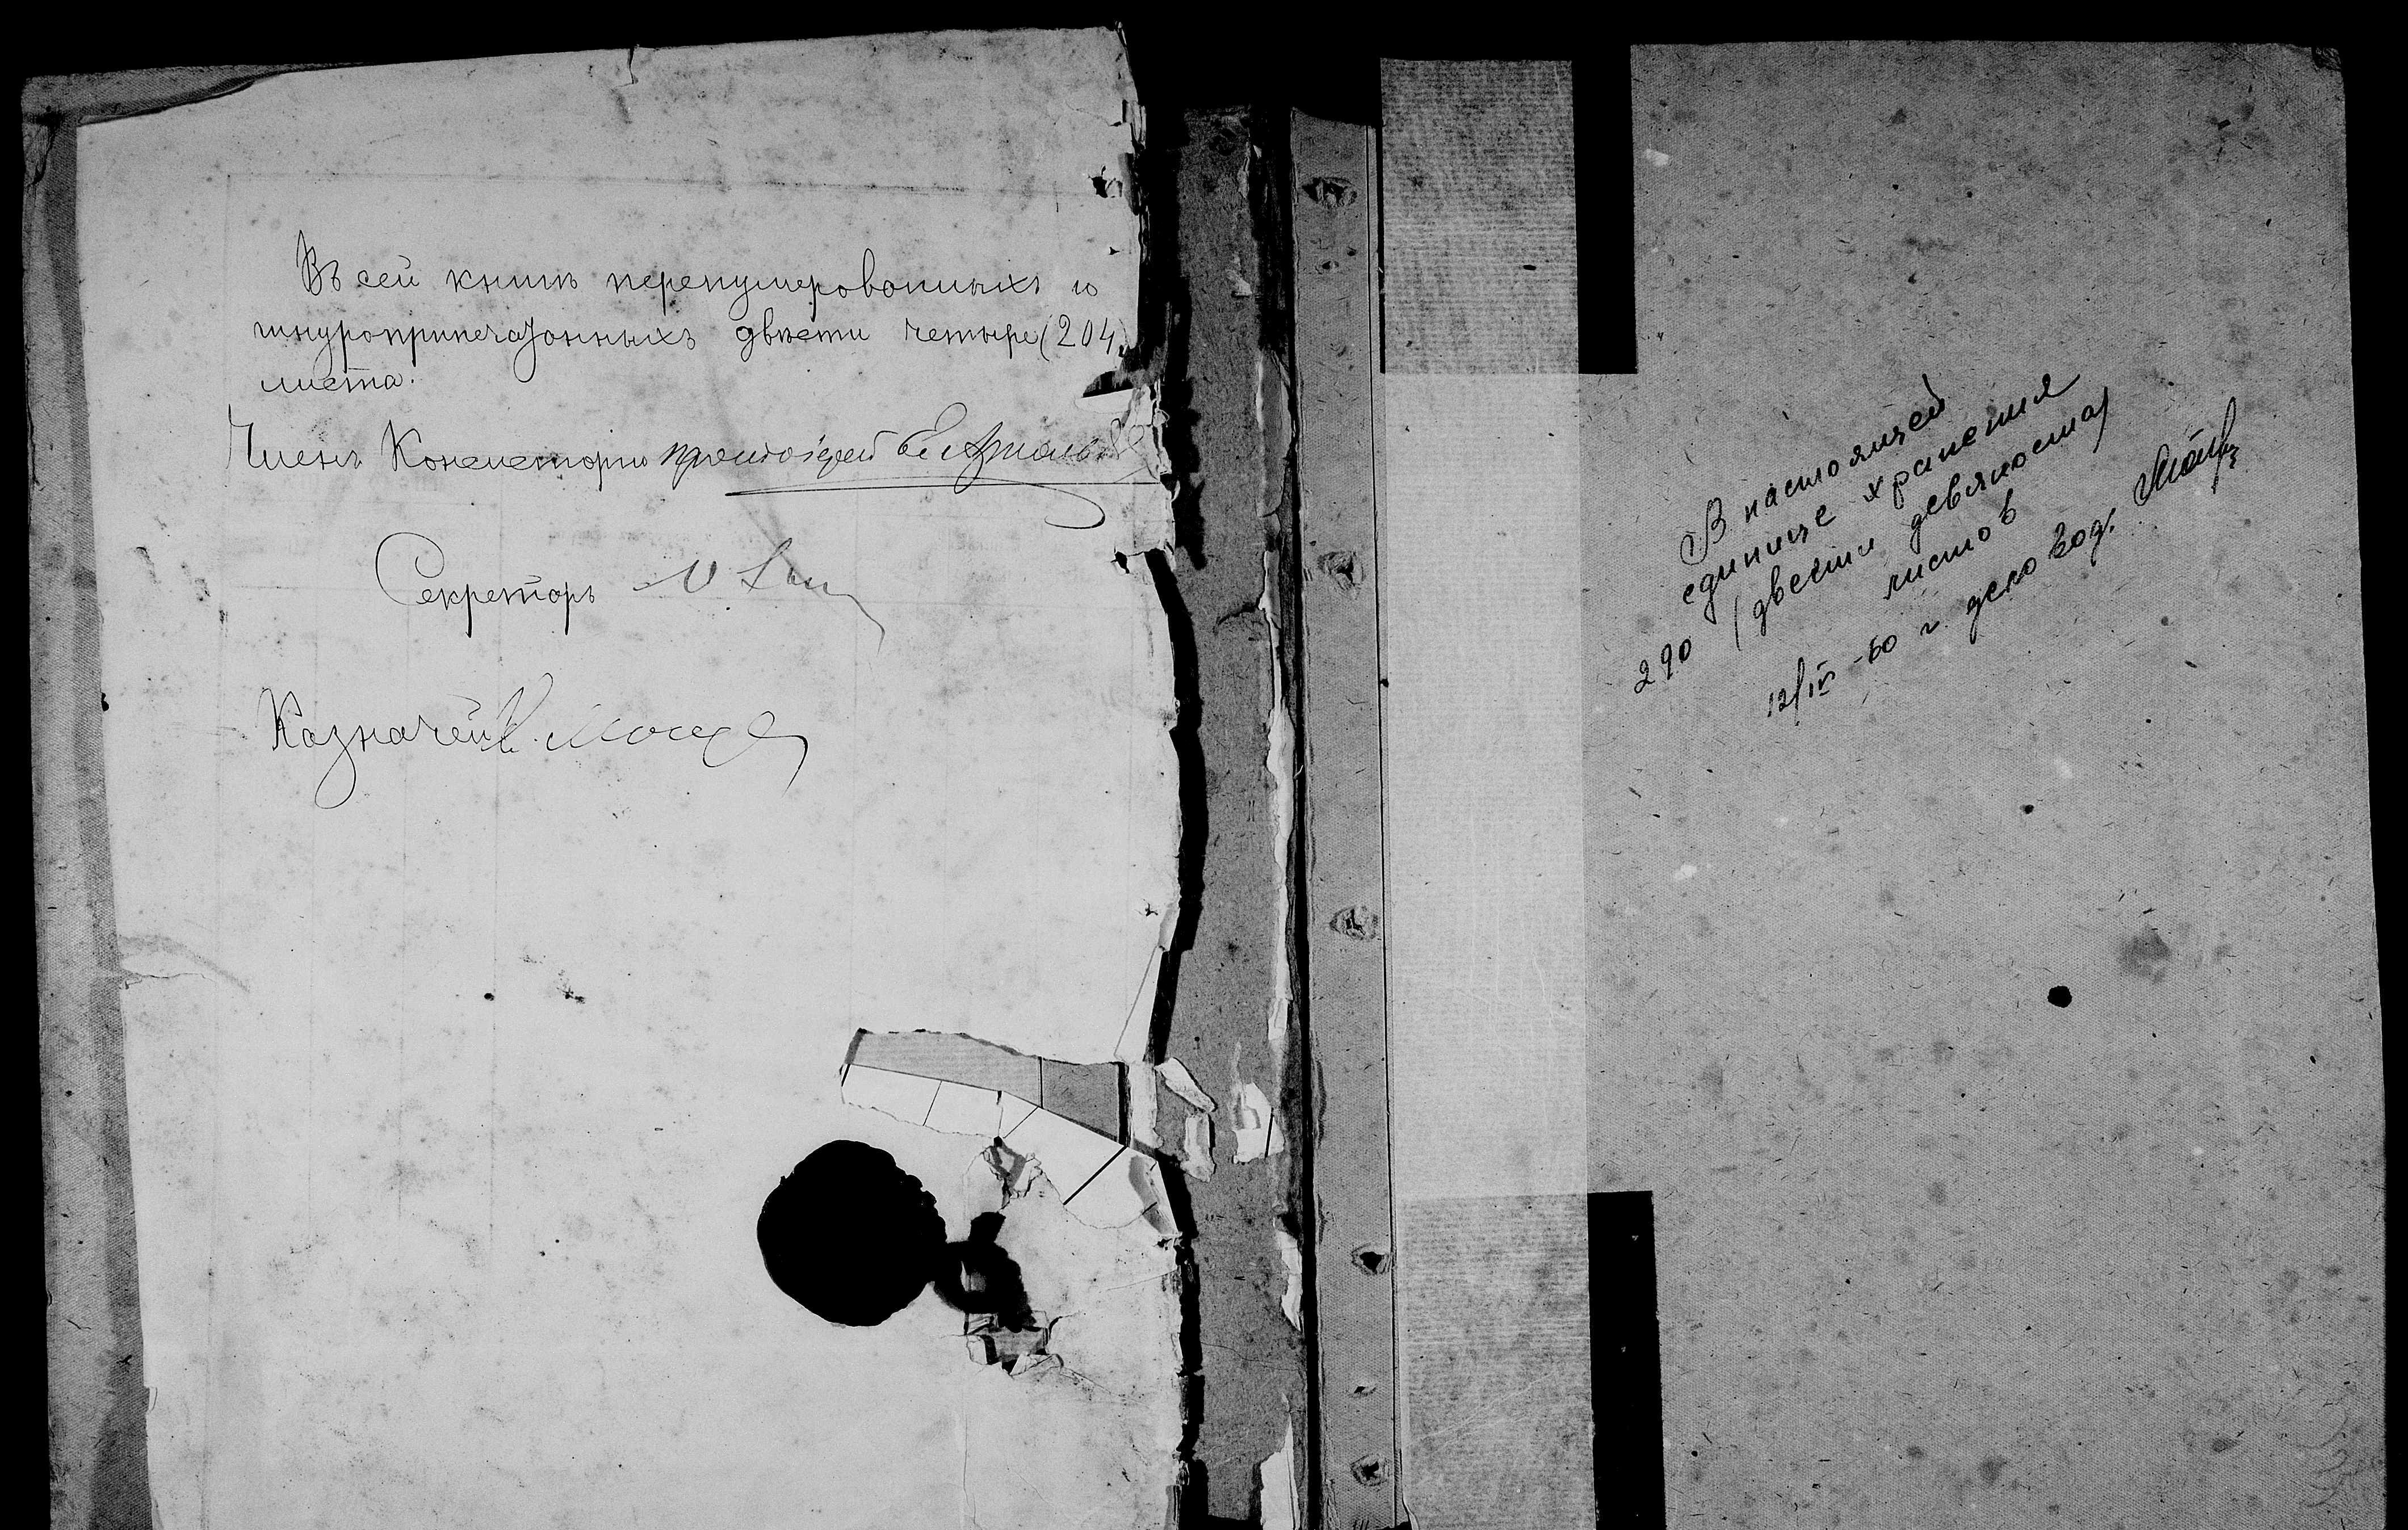 Въ сей книгѣ перенумерованныхъ и
шнуроприпечатанныхъ двѣсти четыре (204)
листа.
Членъ Консисторіи протоіерей
Секретарь
Казначей
В настоящей
единице хранения
290 (двести девяносто)
листов
12/IV-60 г. деловод.